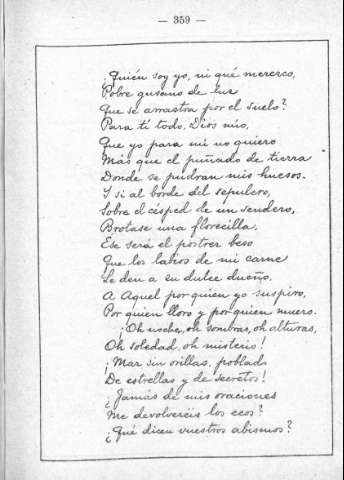 — 359 —
¿Quién soy yo, ni qué merezco,
Pobre gusano de luz
Que se arrastra por el suelo?
Para tí todo, Dios mío,
Que yo para mí no quiero
Más que el puñado de tierra
Donde se pudran mis huesos.
Y si al borde del sepulcro,
Sobre el césped de un sendero,
Brotase una florecilla.
Ese será el postrer beso
Que los labios de mi carne
Le den a su dulce dueño.
A Aquel por quien yo suspiro,
Por quien lloro y por quien muero.
¡Oh noches, oh sombras, oh alturas,
Oh soledad, oh misterio!
¡Mar sin orillas, poblado
De estrellas y de secretos!
¿Jamás de mis oraciones
Me devolveréis los ecos?
¿Qué dicen vuestros abismos?